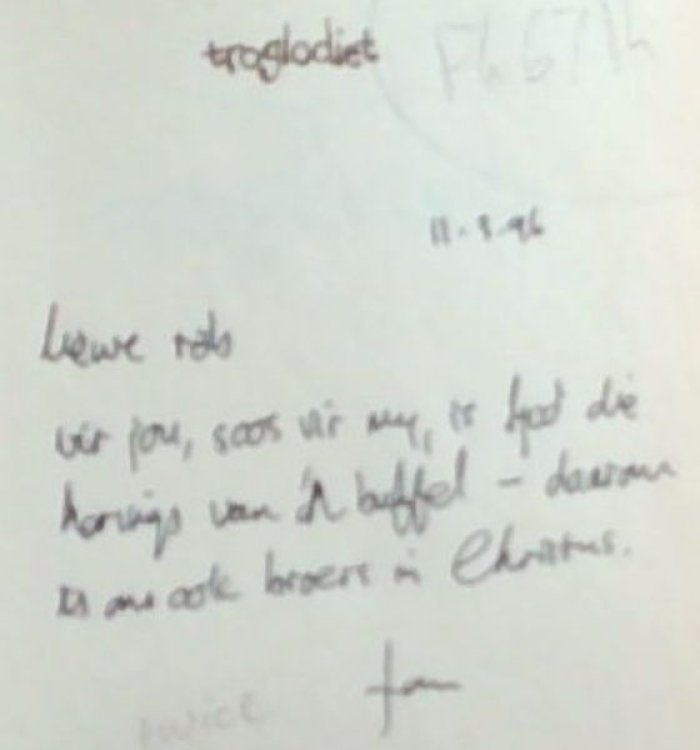 troglodiet
11-3-96
Liewe rob
vir jou, soos vir my, is God die
horings van 'n buffel – daarom
is ons ook broers in Christus.
twice